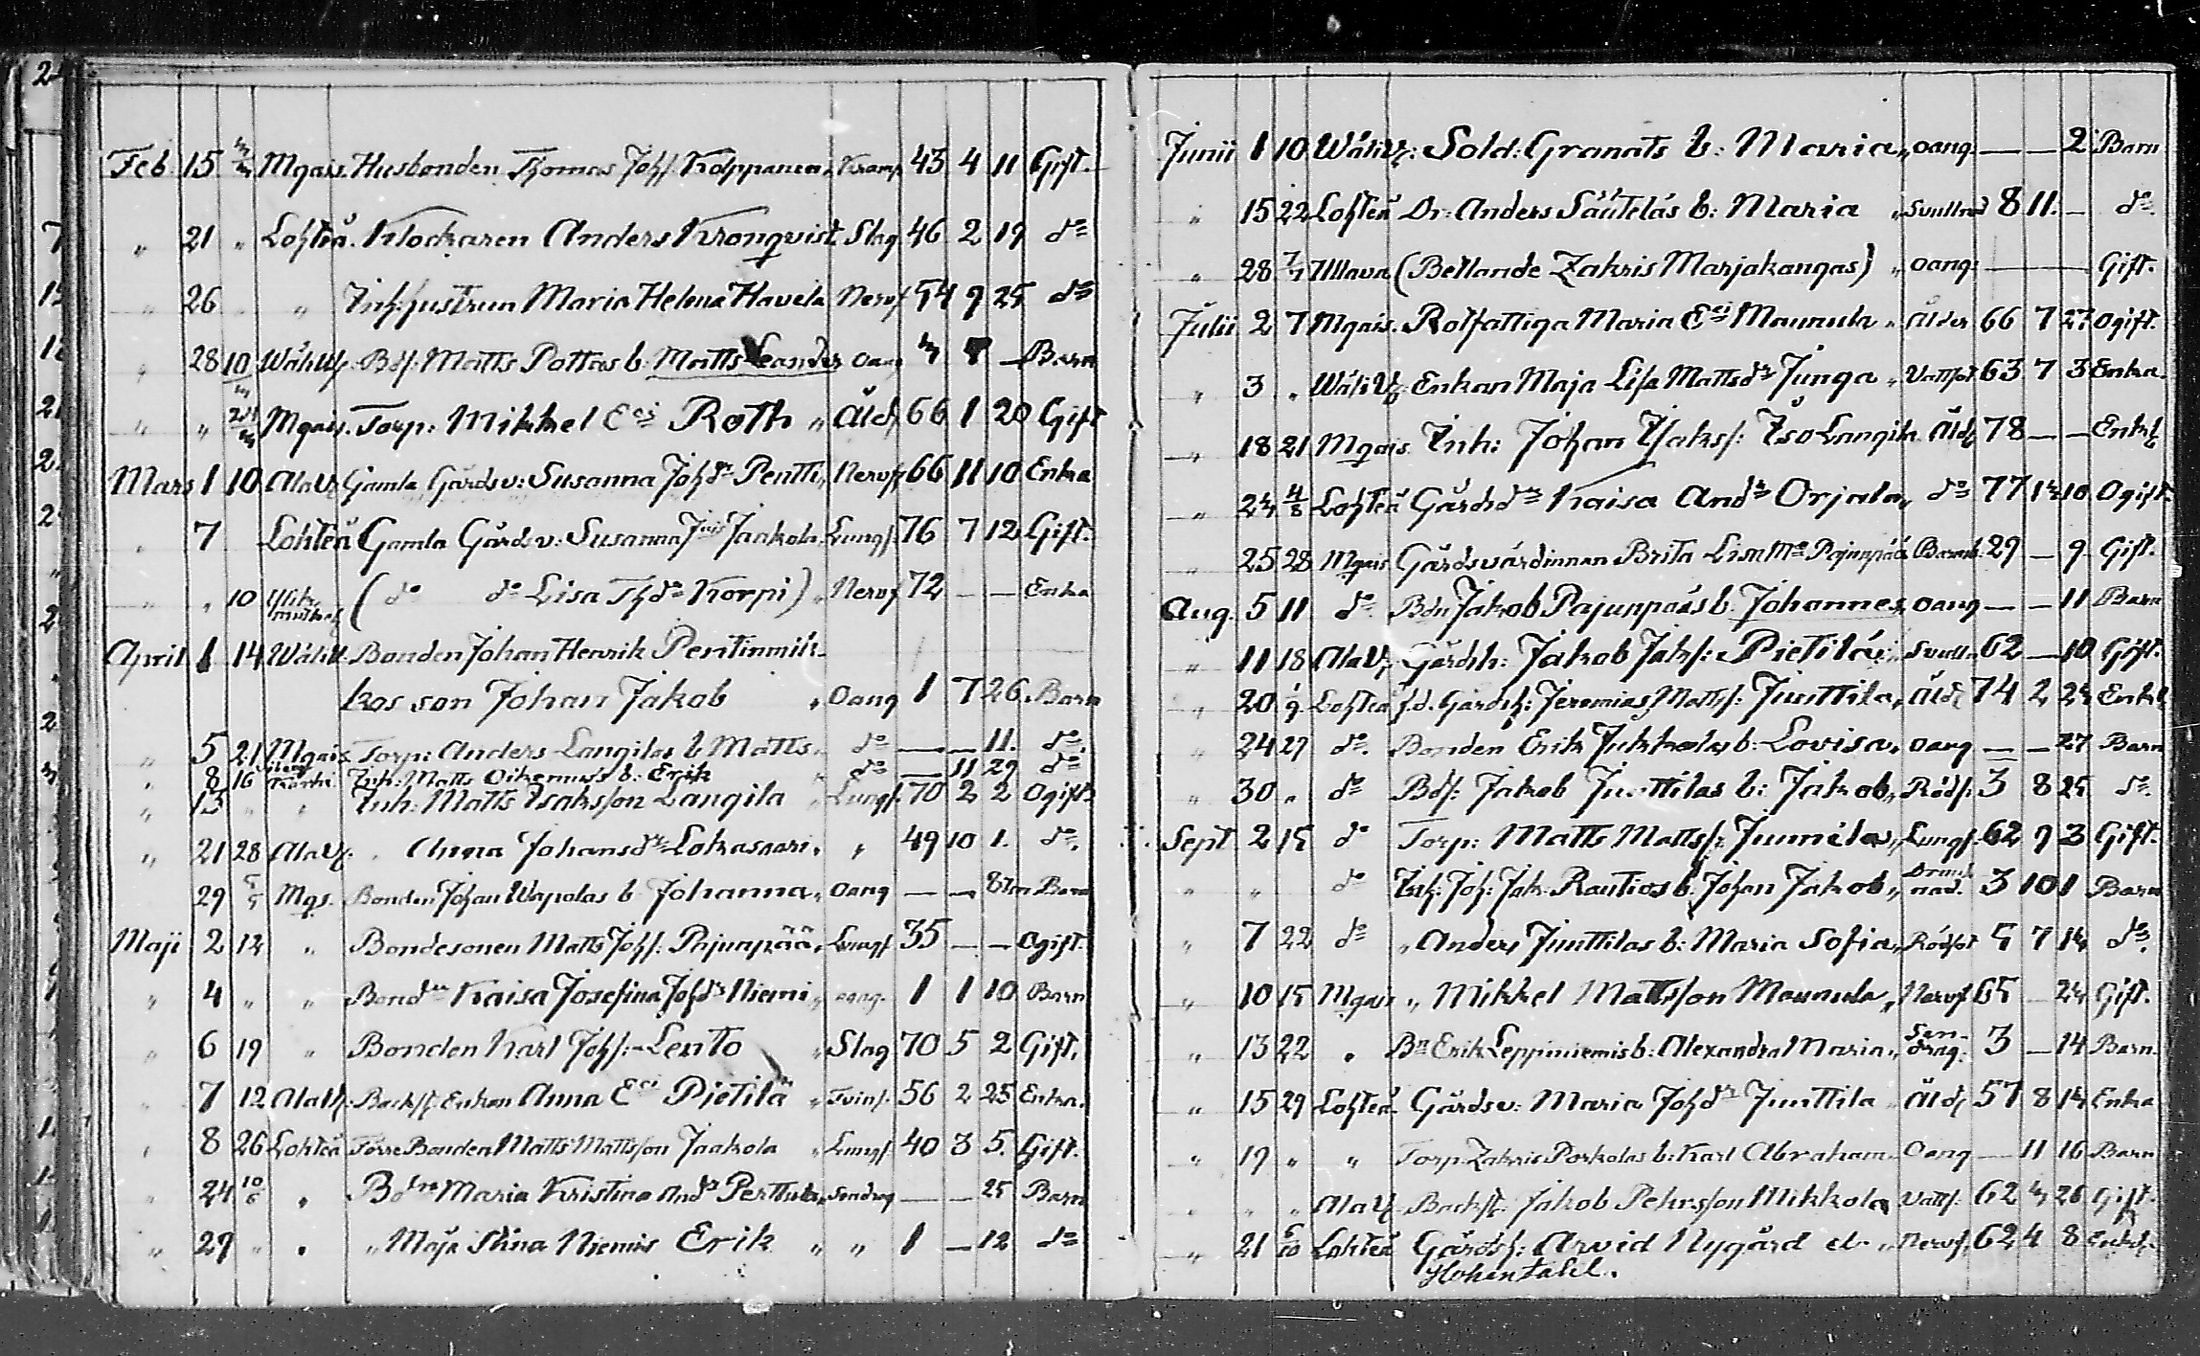 Feb. 15 Mqais. Husbonden Thomas Johs. Kolppanen, Kramp 43 4 11 Gift.
" 21 " Lohteå. Klockaren Anders Kronqvist Slag 46 2 19 do
" 26 " " Inh: hustrun Maria Helena Havela Nervf 54 9 25 do
" 28 10 Wäliv. Bds. Matts Pottas b. Matts Leander oang Barn
" " Mqais. Torp: Mikkel Eci Roth " Åld. 66 1 20 Gift
Mars 1 10 AlaV. Gamla Gårdsv: Susanna Johdr Pentti, Nervf 66 11 10 Enka
" 7 Lohteå Gamla Gårdv: Susanna Jaakola, Lungf. 76 7 12 Gift.
" " 10 (do do Lisa Thdr Korpi) " Nervf 72 — — Enka
April 1 14 Wäliv. Bonden Johan Henrik Pentinmik-
kos son Johan Jakob " Oang 1 7 26 Barn
" 5 21 Mqais Torp: Anders Langilas b Matts. do — — 11. do.
" 8 16 Inh: Matts Oikemuss b: Erik " do — 11 29 do
" 13 " " Inh: Matts Isaksson Langila " Lungf. 70 2 2 Ogift
" 21 28 AlaV. " Anna Johansdr Lokasaari, " 49 10 1. do.
" 29 5/5 Mqs. Bonden Johan Wapolas b Johanna, Oang — — 8 Barn
Maji 2 12 " Bondesonen Matts Johs. Pajunpää, Lungf 35 — — Ogift.
" 4 " " Bonddn Kaisa Josefina Johdr Niemi, oang. 1 1 10 Barn
" 6 19 " Bonden Karl Johs: Lento " Slag 70 5 2 Gift.
" 7 12 AlaV. Backst. Enkan Anna Eci Pietilä " Tvins. 56 2 25 Enka.
" 8 26 Lohteå Torre Bonden Matts Mattsson Jaakola " Lungf. 40 3 5. Gift.
" 24 10/6 " Maria Kristina Anddr Perttula, Sendrag — — 25 Barn
" 29 " " " Maja Stina Niemis Erik " " 1 — 12 do
Junii 1 10 Wäliv: Sold: Granats b: Maria, oang. — — 2 Barn
" 15 22 Lohteå Dr: Anders Sääteläs b: Maria " Svullnad 8 11. — do.
" 28 7/7 Ullava (Betlande Zakris Marjakangas) " oang. — — Gift.
Julii 2 7 Mqais. Rotfattiga Maria Eci Maunula " Ålder 66 7 27 Ogift.
" 3 " Wäliv. Enkan Maja Lisa Mattsdr Junga " Vattsot 63 7 3 Enka.
" 18 21 Mqais Inh: Johan Isaks: Iso Langila Åld. 78 — — Enkl.
" 24 4/8 Lohteå Gårddr Kaisa Anddr Orjala, do 77 10 Ogift.
" 25 28 Mqais Gårdsvärdinnan Brita Lisa Pajunpää Barnsb. 29 — 9. Gift.
Aug. 5 11 do Bdn Jakob Pajunpääs b. Johannes, oang — — 11 Barn
" 11 18 AlaV. Gårdsh: Jakob Jaks: Pietilä, Svulln. 62 — 10 Gift.
" 20 1/9 Lohteå f.d. Gårdsh: Jeremias Matts: Junttila, Åld. 74 2 24 Enkl.
" 24 29 do. Bonden Erik Jukkolas b: Lovisa, oang — — 27 Barn
" 30 " do Bds: Jakob Junttilas b: Jakob, Röds: 3 8 25 do.
Sept 2 15 do Torp: Matts Matts: Jumila, Lungf. 62 9 3 Gift.
" " do Inh: Joh: Jak. Rautios b. Johan Jakob, Drunk-
nad. 3 10 1 Barn
" 7 22 do " Anders Junttilas b: Maria Sofia, Rödsot 5 7 14 do.
" 10 15 Mqais " Mikkel Mattsson Maunula, Nervf 65 — 24 Gift.
" 13 22 " Bn Erik Leppiniemis b: Alexandra Maria, Sen-
drag. 3 — 14 Barn.
" 15 29 Lohteå. Gårdsv: Maria Johdr Junttila " Åld. 57 8 14 Enka
" 19 " " Torp. Zakris Porkolas b: Karl Abraham. Oang — 11 16 Barn
" " " AlaV. Backst. Jakob Pehrsson Mikkola Vatts. 62 26 Gift.
" 21 6/10 Lohteå Gårdsh: Arvid Nygård el. " Nervf. 62 4 8 Enkl.
Hohentahl.